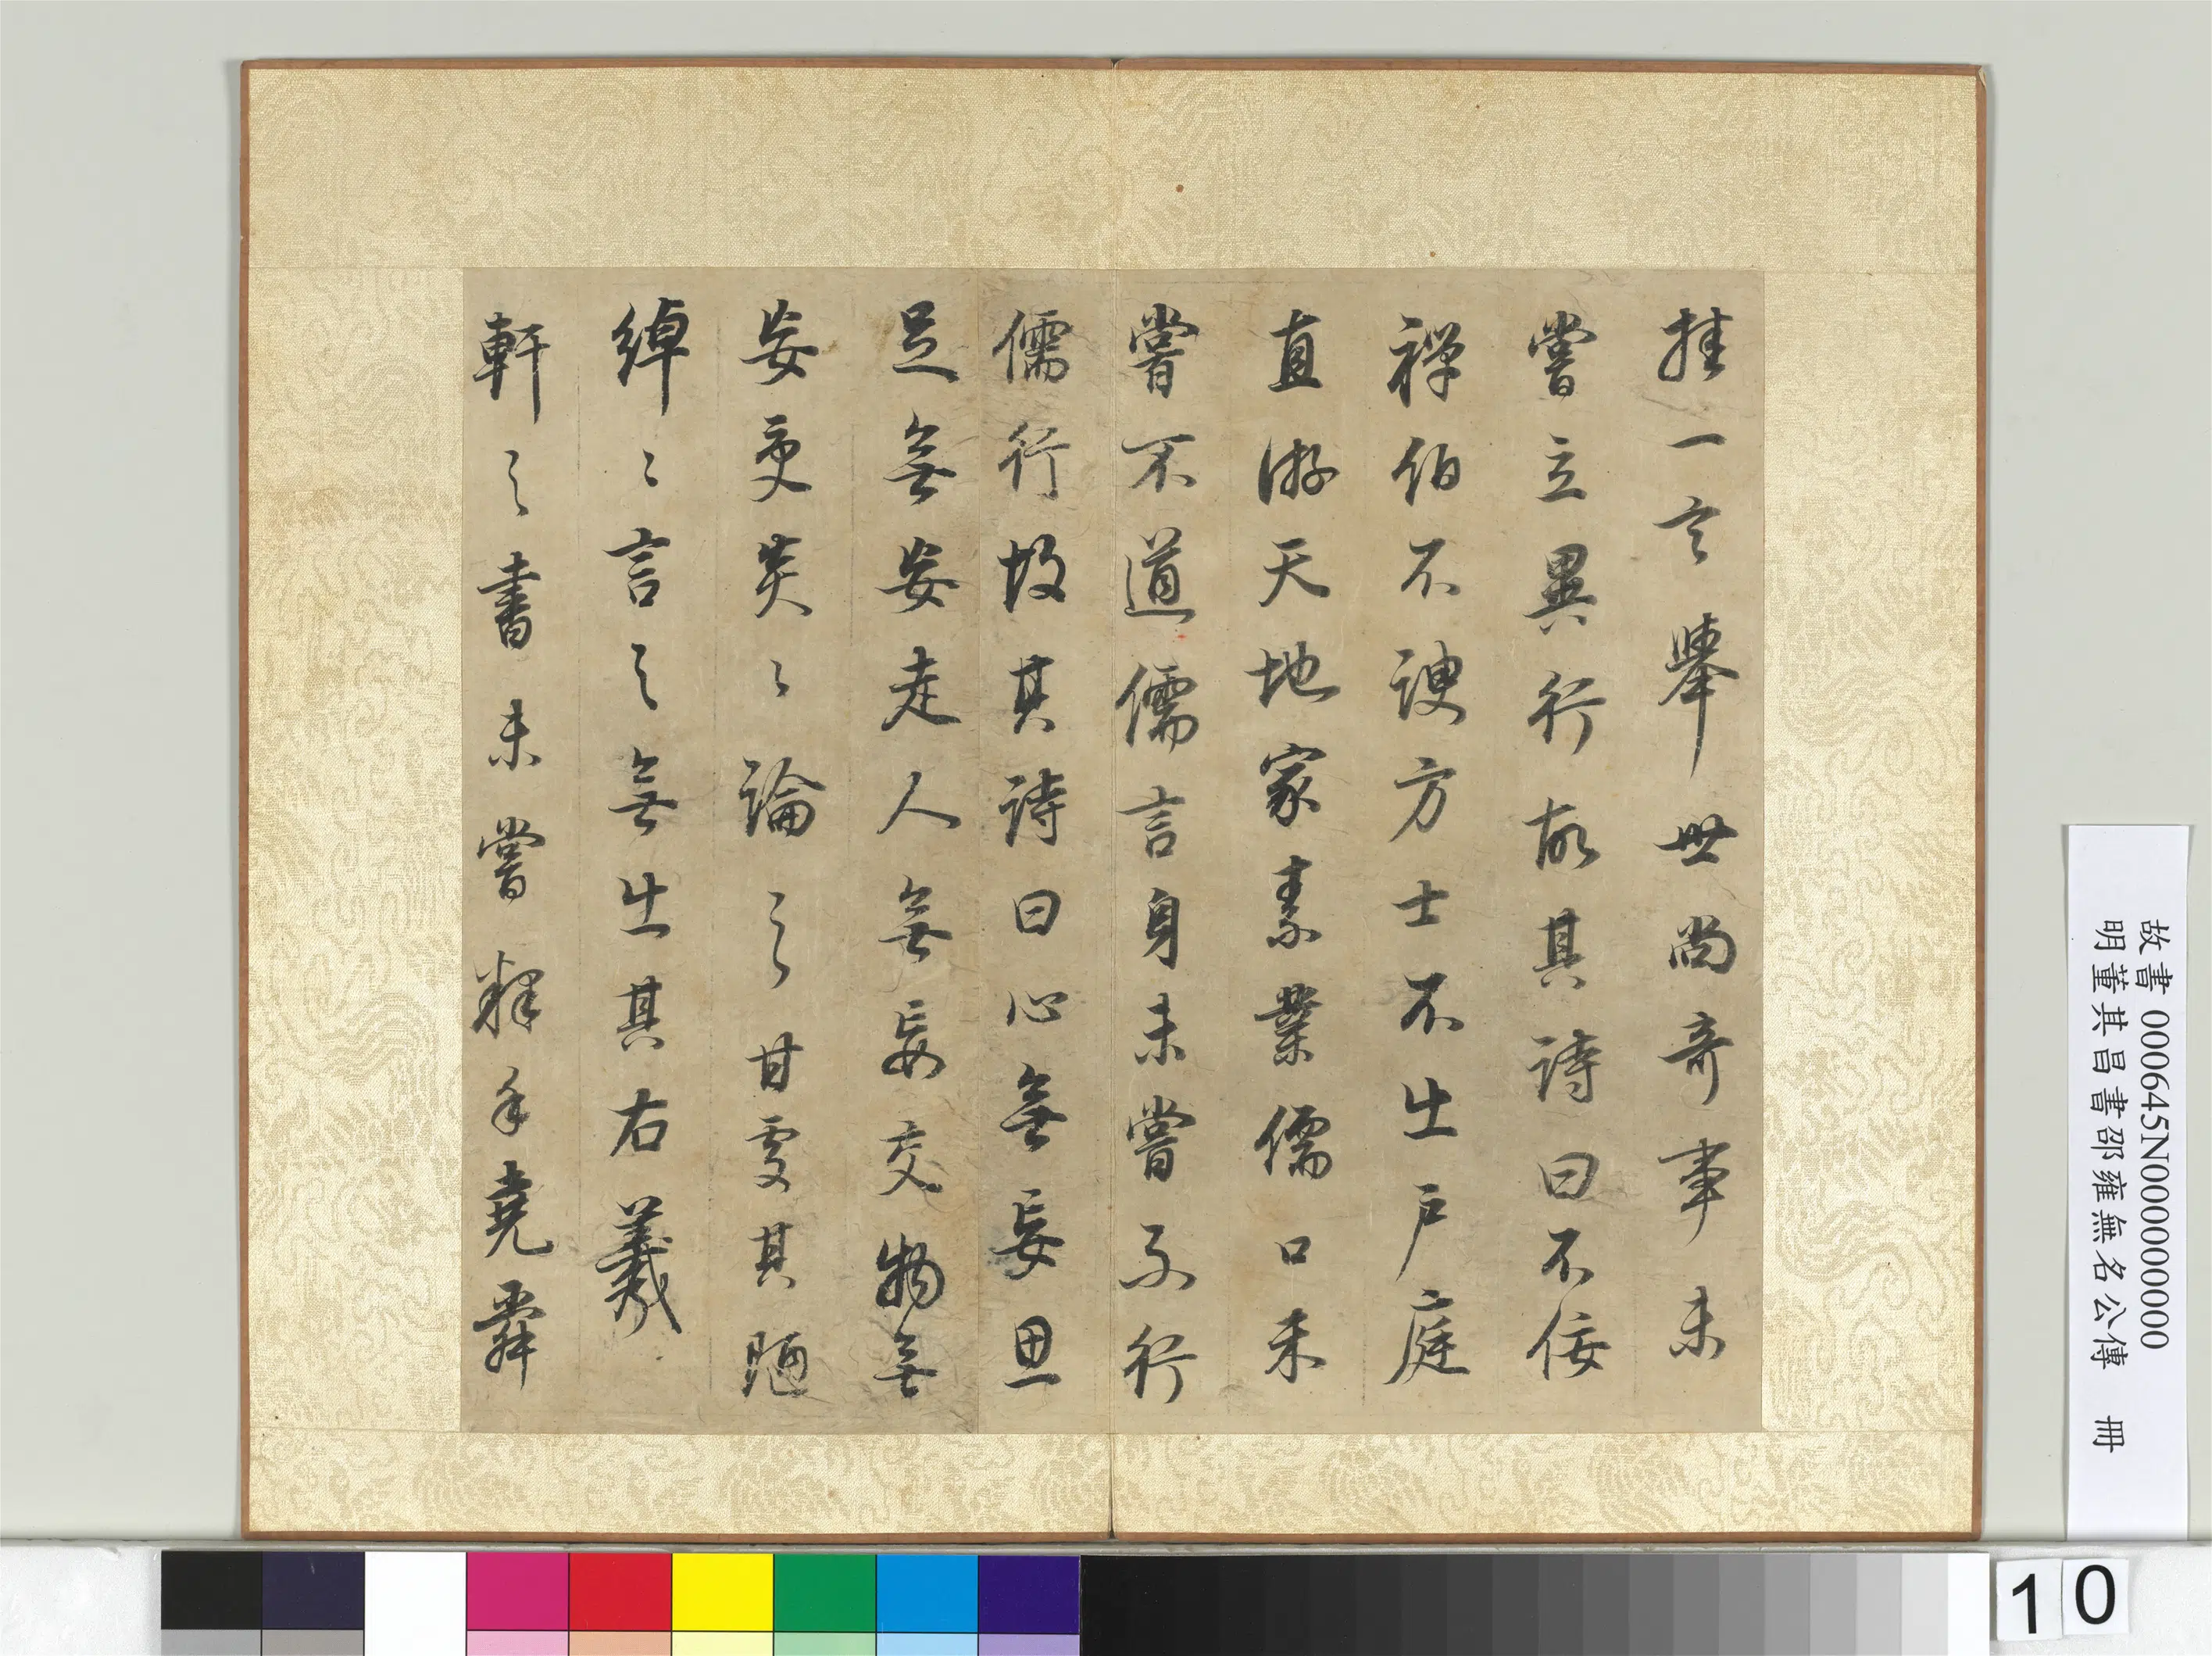 挂一言舉世尚奇事未
嘗立異行故其詩曰不佞
禪伯不諛方士不出戶庭
直游天地家素業儒口未
嘗不道儒言身未嘗不行
儒行故其詩曰心無妄思
足無妄走人無妄交物無
妄受炎〻論之甘處其陋
綽〻言之無出其右羲
軒之書未嘗釋手堯舜
故書 000645N000000000
明董其昌書邵雍無名公傳 冊
10